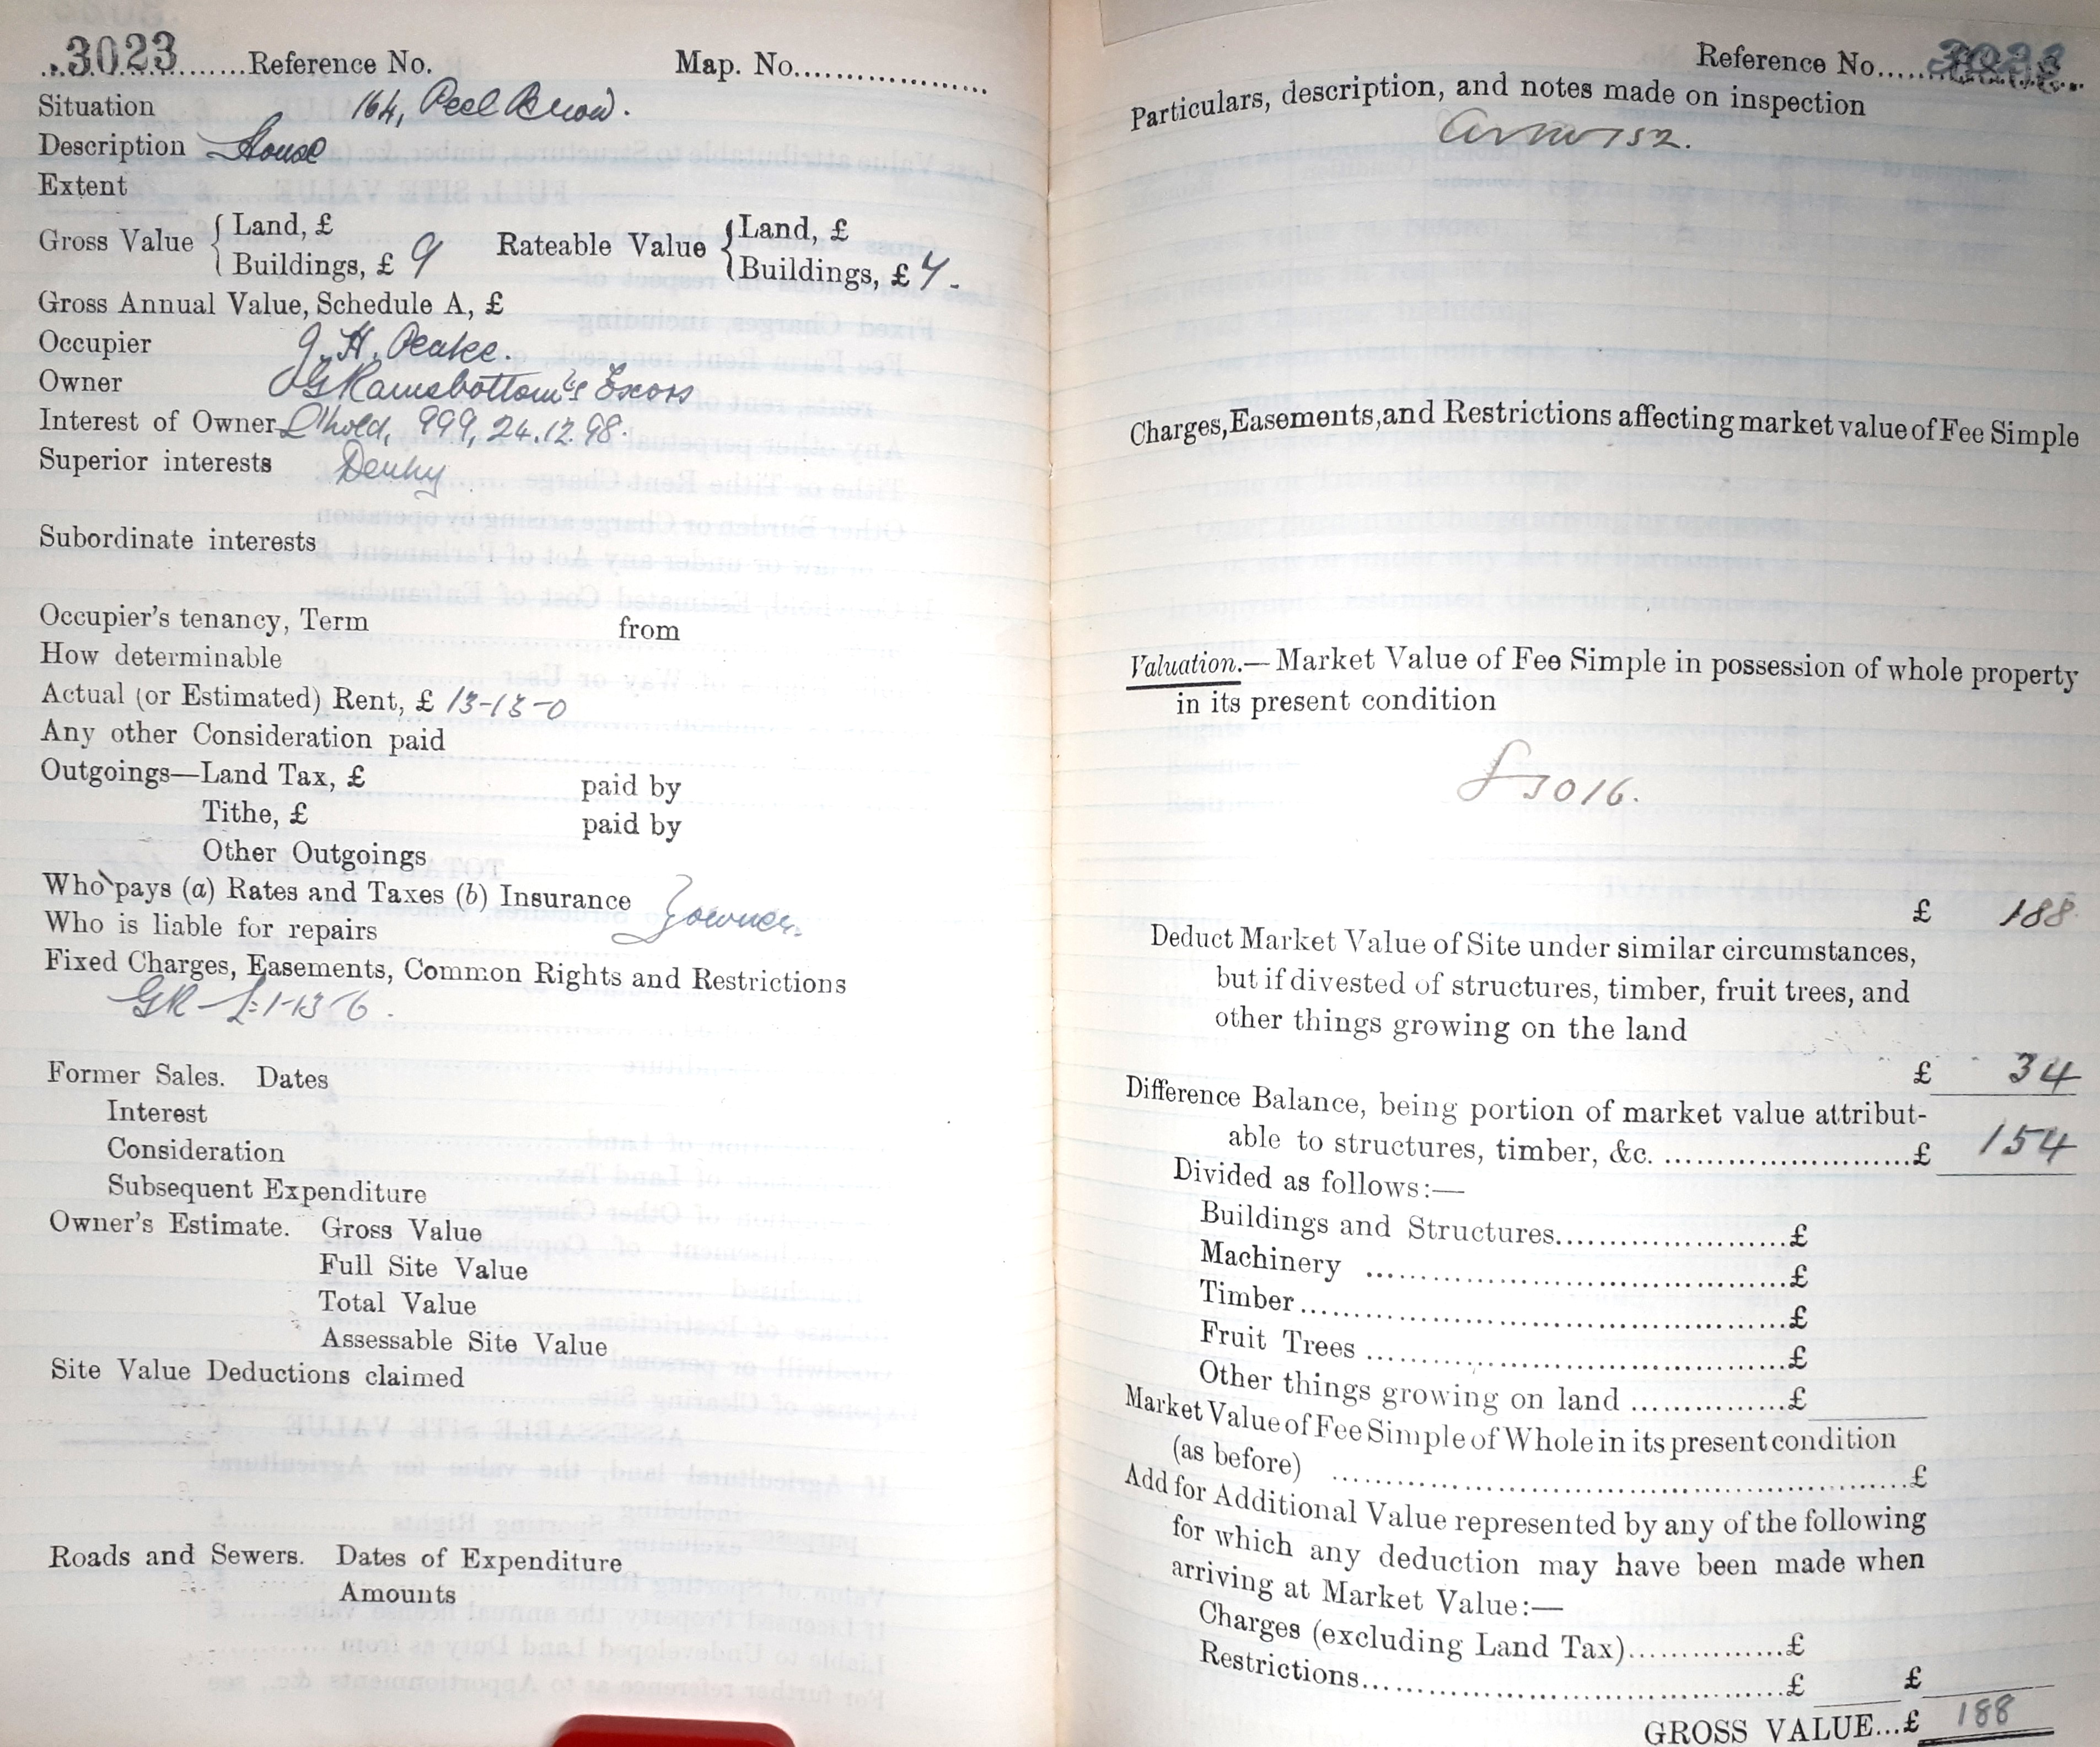 3023 Reference No. Map. No.
Situation 164, Peel Brow.
Description House
Extent
Gross Value { Land, £ Rateable Value { Land, £
Buildings, £ 9 Buildings, £ 7.
Gross Annual Value, Schedule A, £
Occupier J. H. Peake.
Owner JG Ramsbottom's Exors
Interest of Owner L'hold, 999, 24.12.98.
Superior interests
Subordinate interests
Occupier's tenancy, Term from
How determinable
Actual (or Estimated) Rent, £ 13-13-0
Any other Consideration paid
Outgoings—Land Tax, £ paid by
Tithe, £ paid by
Other Outgoings
Who pays (a) Rates and Taxes (b) Insurance } owner.
Who is liable for repairs
Fixed Charges, Easements, Common Rights and Restrictions
GR - £1-13-6.
Former Sales. Dates
Interest
Consideration
Subsequent Expenditure
Owner's Estimate. Gross Value
Full Site Value
Total Value
Assessable Site Value
Site Value Deductions claimed
Roads and Sewers. Dates of Expenditure
Amounts
Reference No. 3023
Particulars, description, and notes made on inspection
Charges, Easements, and Restrictions affecting market value of Fee Simple
Valuation.—Market Value of Fee Simple in possession of whole property
in its present condition
£ 3016.
£ 188
Deduct Market Value of Site under similar circumstances,
but if divested of structures, timber, fruit trees, and
other things growing on the land
£ 34
Difference Balance, being portion of market value attribut-
able to structures, timber, &c. £ 154
Divided as follows:—
Buildings and Structures £
Machinery £
Timber £
Fruit Trees £
Other things growing on land £
Market Value of Fee Simple of Whole in its present condition
(as before) £
Add for Additional Value represented by any of the following
for which any deduction may have been made when
arriving at Market Value:—
Charges (excluding Land Tax) £
Restrictions £ £
GROSS VALUE...£ 188